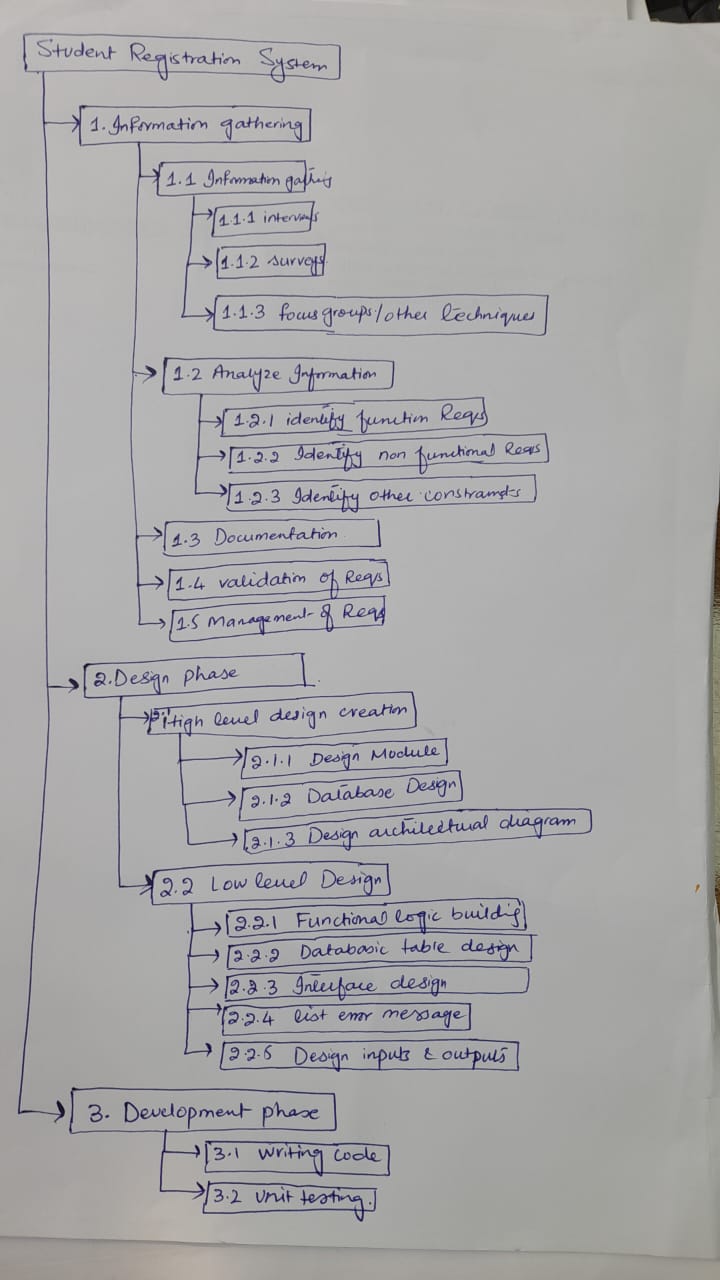 Student Registration System
1. Information gathering
1.1 Information
1.1.1
1.1.2 surveys
1.1.3 focus groups/other techniques
1.2 Analyze Information
1.2.1 identify function Reqs
1.2.2 Identify non functional Reqs
1.2.3 Identify other
1.3 Documentation
1.4 validation of Reqs
1.5 Management of Reqs
2. Design phase
High level design creation
2.1.1 Design Module
2.1.2 Database Design
2.1.3 Design architectural diagram
2.2 Low level Design
2.2.1 Functional logic building
2.2.2 table design
2.2.3 Interface design
2.2.4 list error message
2.2.5 Design inputs & outputs
3. Development phase
3.1 writing code
3.2 unit testing.